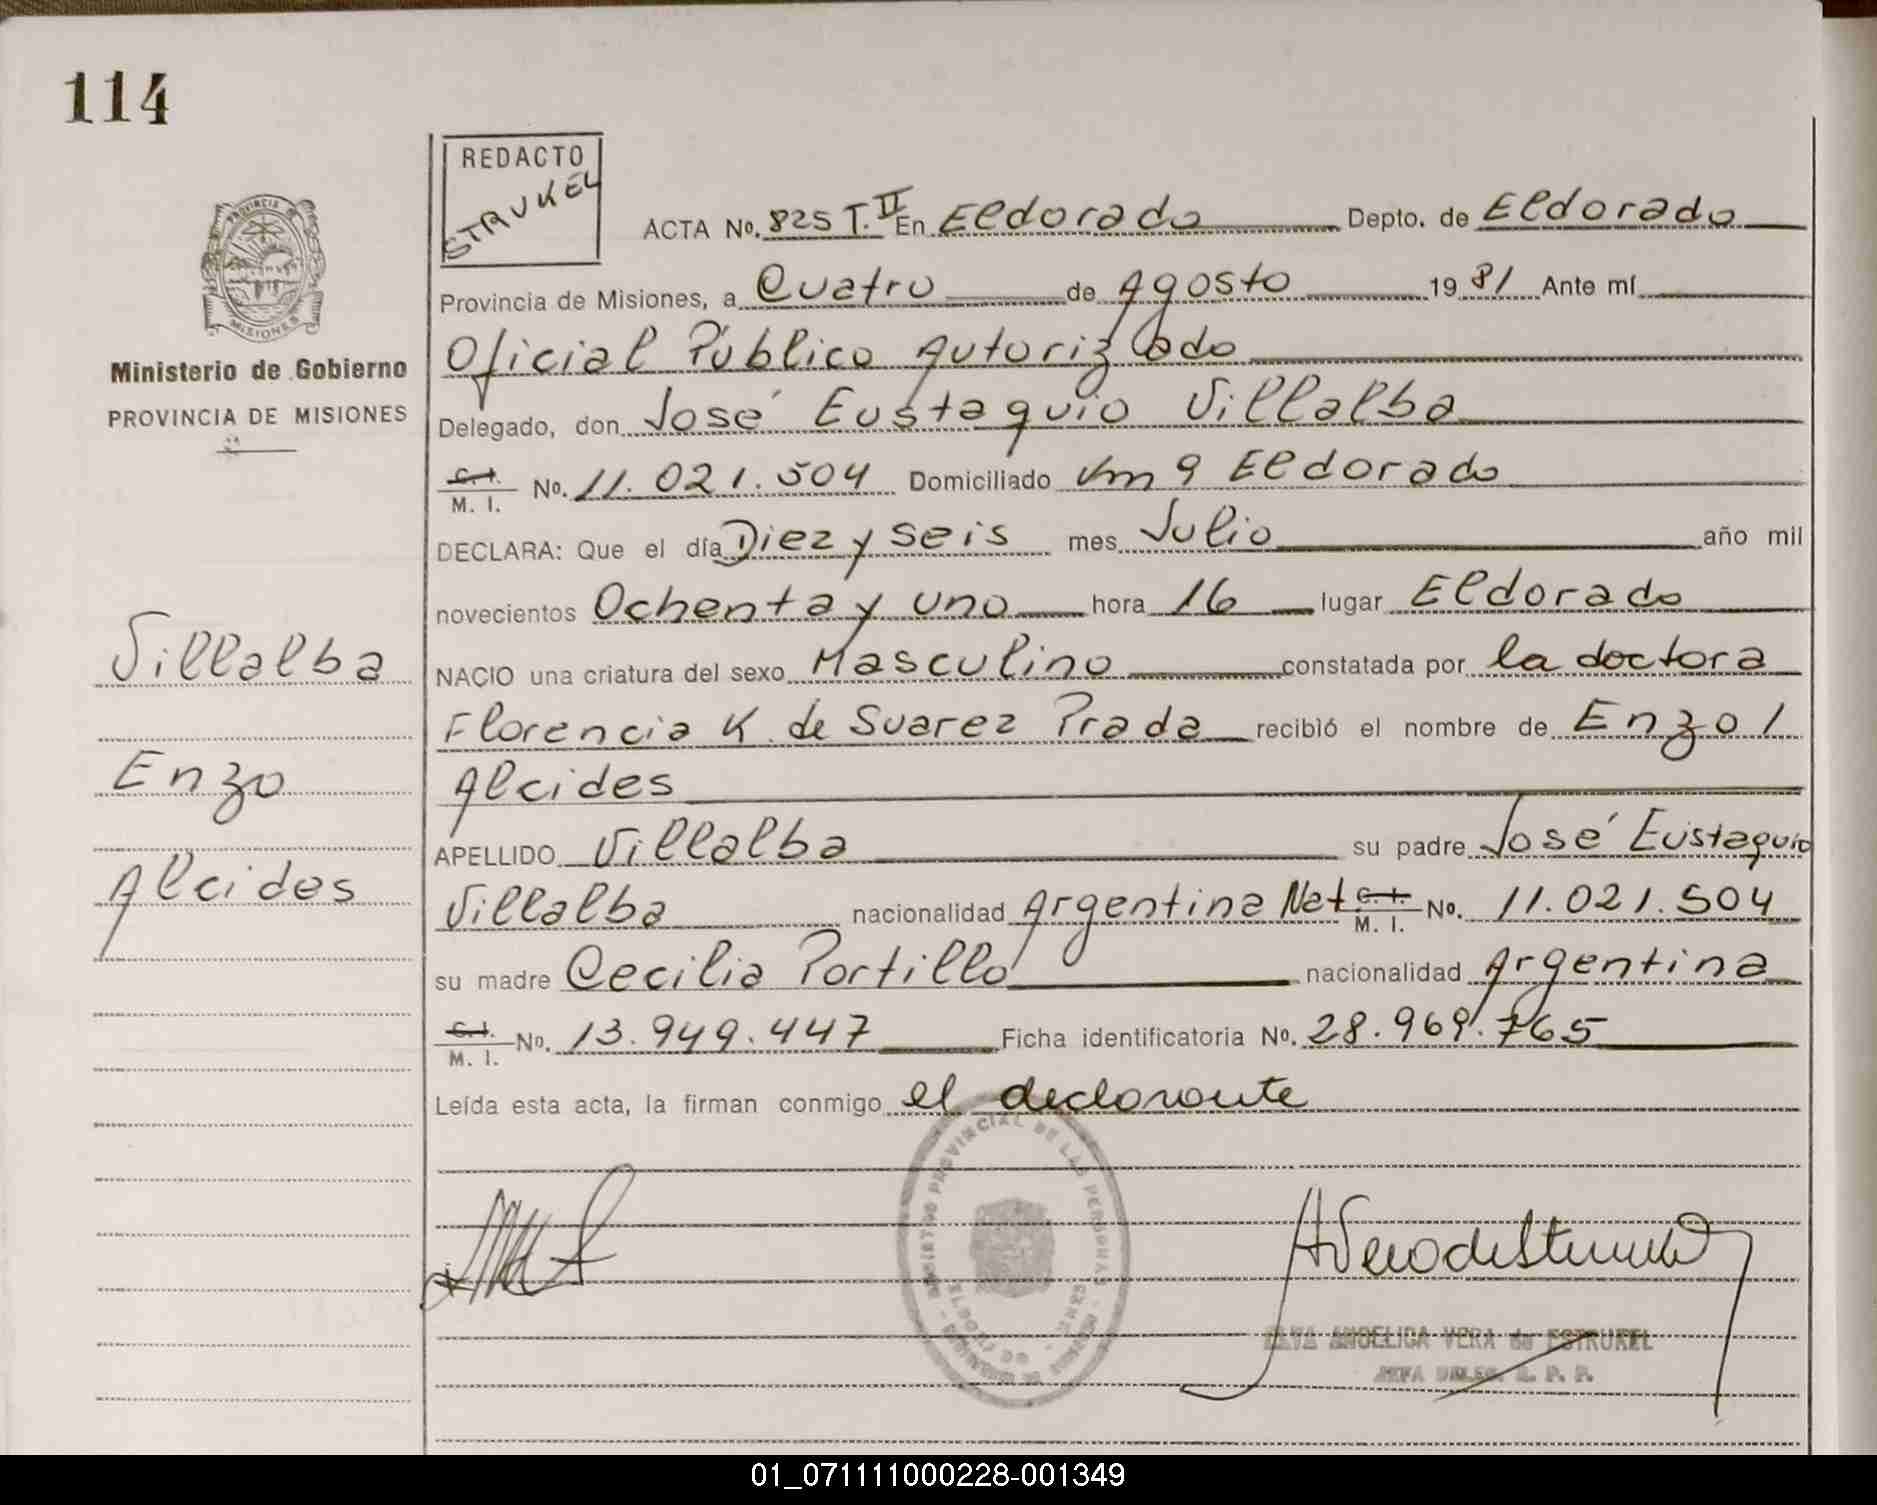 114
REDACTO
STRUKEL
ACTA No. 825 T. II En Eldorado Depto. de Eldorado
Provincia de Misiones, a Cuatro de Agosto 1981 Ante mí
Oficial Público Autorizado
Delegado, don José Eustaquio Villalba
C.I. M. I. No. 11.021.504 Domiciliado Km 9 Eldorado
DECLARA: Que el día Diez y seis mes Julio año mil
novecientos Ochenta y uno hora 16 lugar Eldorado
NACIO una criatura del sexo Masculino constatada por la doctora
Florencia K. de Suarez Prada recibió el nombre de Enzo /
Alcides
APELLIDO Villalba su padre José Eustaquio
Villalba nacionalidad Argentina Nat C.I. M. I. No. 11.021.504
su madre Cecilia Portillo nacionalidad Argentina
C.I. M. I. No. 13.949.447 Ficha identificatoria No. 28.969.765
Leída esta acta, la firman conmigo el declarante
PROVINCIA DE
MISIONES
Ministerio de Gobierno
PROVINCIA DE MISIONES
Villalba
Enzo
Alcides
REGISTRO PROVINCIAL DE LAS PERSONAS
ELVA ANGELICA VERA de ESTRUKEL
JEFA DELEG. R. P. P.
01_071111000228-001349